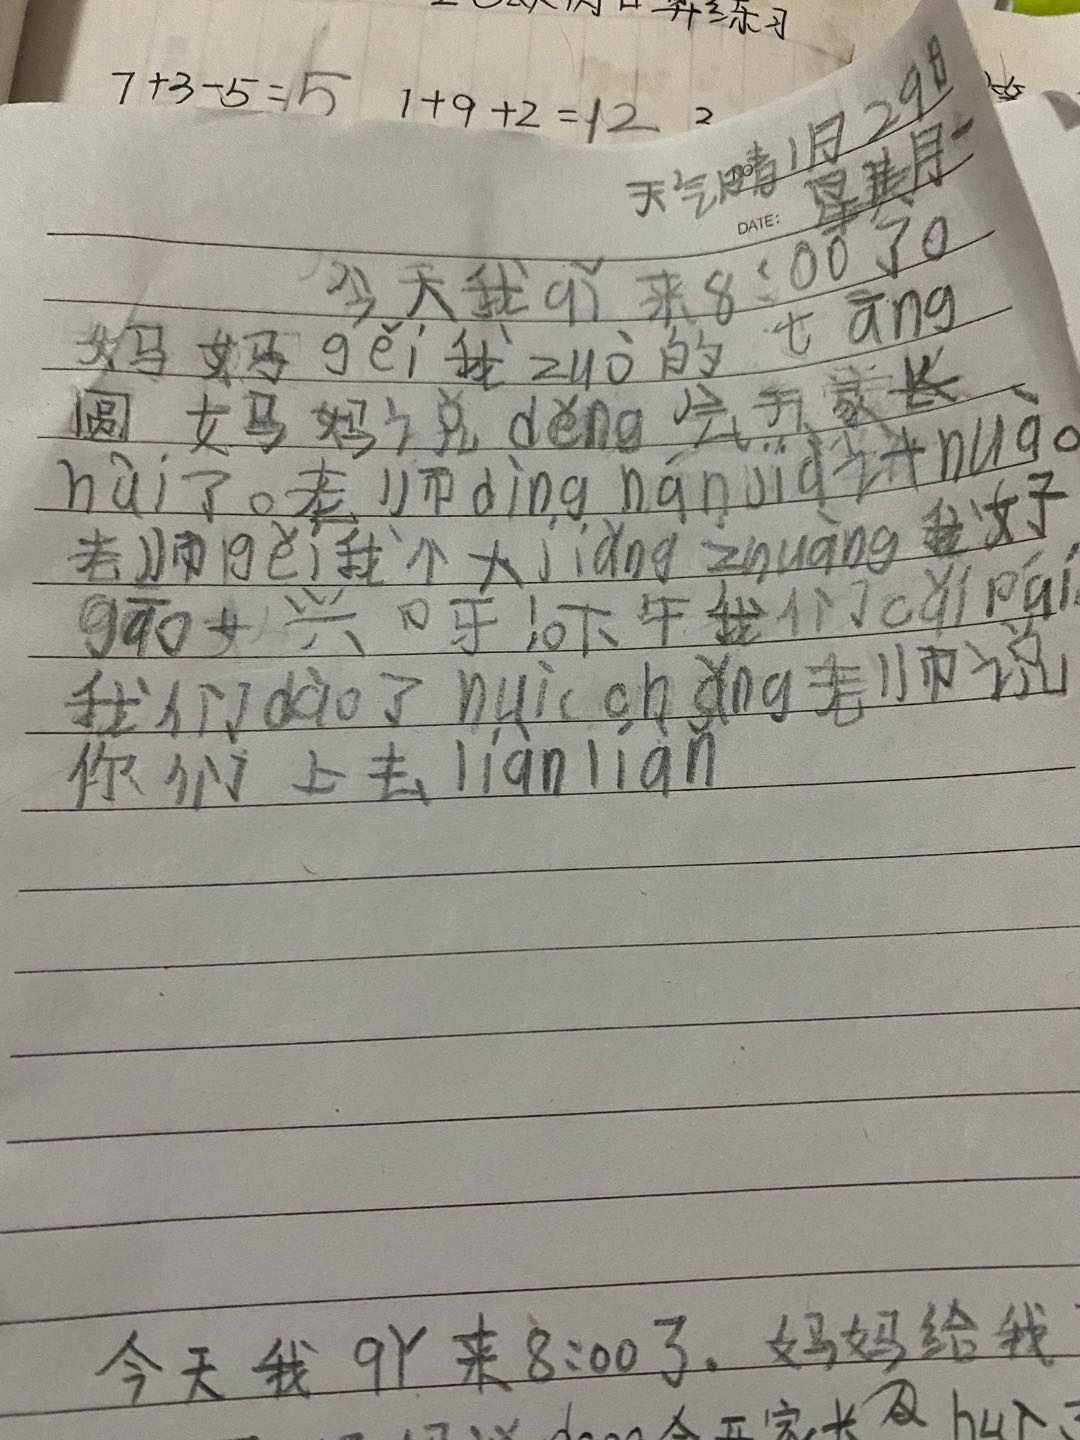 算练习
7+3-5=5 1+9+2=12 2
天气晴1月29日
NO
星其月一
DATE:
今天我qǐ来8:00了0
妈妈gěi我zuò的tāng
圆妈妈说děng会开家长
hùi了。老师dìng hán jià计huào
老师gěi我个大jiǎng zhuàng我好
gāo兴呀!下午我们cǎi pái
我们dào了huìc chǎng老师说
你们上去liàn liàn
今天我qǐ来8:00了。妈妈给我
会开家长